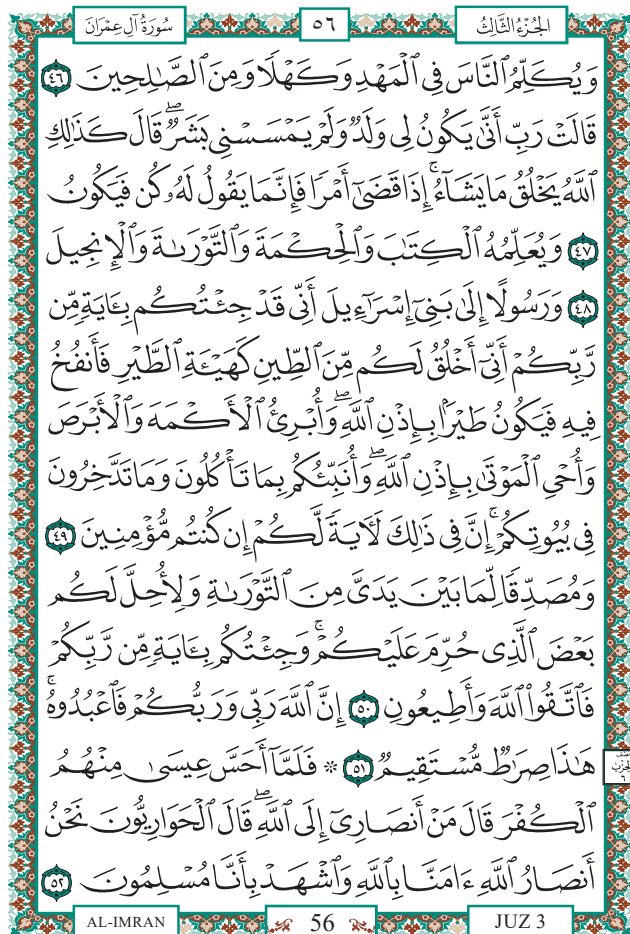 سُورَةُ آلِ عِمْرَانَ ٥٦ الجُزْءُ الثَّالِثُ
وَيُكَلِّمُ ٱلنَّاسَ فِي ٱلْمَهْدِ وَكَهْلًا وَمِنَ ٱلصَّـٰلِحِينَ ٤٦
قَالَتْ رَبِّ أَنَّىٰ يَكُونُ لِي وَلَدٌ وَلَمْ يَمْسَسْنِي بَشَرٌ ۖ قَالَ كَذَٰلِكِ
ٱللَّهُ يَخْلُقُ مَا يَشَآءُ ۚ إِذَا قَضَىٰٓ أَمْرًا فَإِنَّمَا يَقُولُ لَهُۥ كُن فَيَكُونُ
٤٧ وَيُعَلِّمُهُ ٱلْكِتَـٰبَ وَٱلْحِكْمَةَ وَٱلتَّوْرَىٰةَ وَٱلْإِنجِيلَ
٤٨ وَرَسُولًا إِلَىٰ بَنِيٓ إِسْرَٰٓءِيلَ أَنِّي قَدْ جِئْتُكُم بِـَٔايَةٍ مِّن
رَّبِّكُمْ أَنِّيٓ أَخْلُقُ لَكُم مِّنَ ٱلطِّينِ كَهَيْـَٔةِ ٱلطَّيْرِ فَأَنفُخُ
فِيهِ فَيَكُونُ طَيْرًۢا بِإِذْنِ ٱللَّهِ ۖ وَأُبْرِئُ ٱلْأَكْمَهَ وَٱلْأَبْرَصَ
وَأُحْيِ ٱلْمَوْتَىٰ بِإِذْنِ ٱللَّهِ ۖ وَأُنَبِّئُكُم بِمَا تَأْكُلُونَ وَمَا تَدَّخِرُونَ
فِي بُيُوتِكُمْ ۚ إِنَّ فِي ذَٰلِكَ لَـَٔايَةً لَّكُمْ إِن كُنتُم مُّؤْمِنِينَ ٤٩
وَمُصَدِّقًا لِّمَا بَيْنَ يَدَيَّ مِنَ ٱلتَّوْرَىٰةِ وَلِأُحِلَّ لَكُم
بَعْضَ ٱلَّذِي حُرِّمَ عَلَيْكُمْ ۚ وَجِئْتُكُم بِـَٔايَةٍ مِّن رَّبِّكُمْ
فَٱتَّقُوا۟ ٱللَّهَ وَأَطِيعُونِ ٥٠ إِنَّ ٱللَّهَ رَبِّي وَرَبُّكُمْ فَٱعْبُدُوهُ ۗ
هَـٰذَا صِرَٰطٌ مُّسْتَقِيمٌ ٥١ ۞ فَلَمَّآ أَحَسَّ عِيسَىٰ مِنْهُمُ
ٱلْكُفْرَ قَالَ مَنْ أَنصَارِيٓ إِلَى ٱللَّهِ ۖ قَالَ ٱلْحَوَارِيُّونَ نَحْنُ
أَنصَارُ ٱللَّهِ ءَامَنَّا بِٱللَّهِ وَٱشْهَدْ بِأَنَّا مُسْلِمُونَ ٥٢
AL-IMRAN 56 JUZ 3